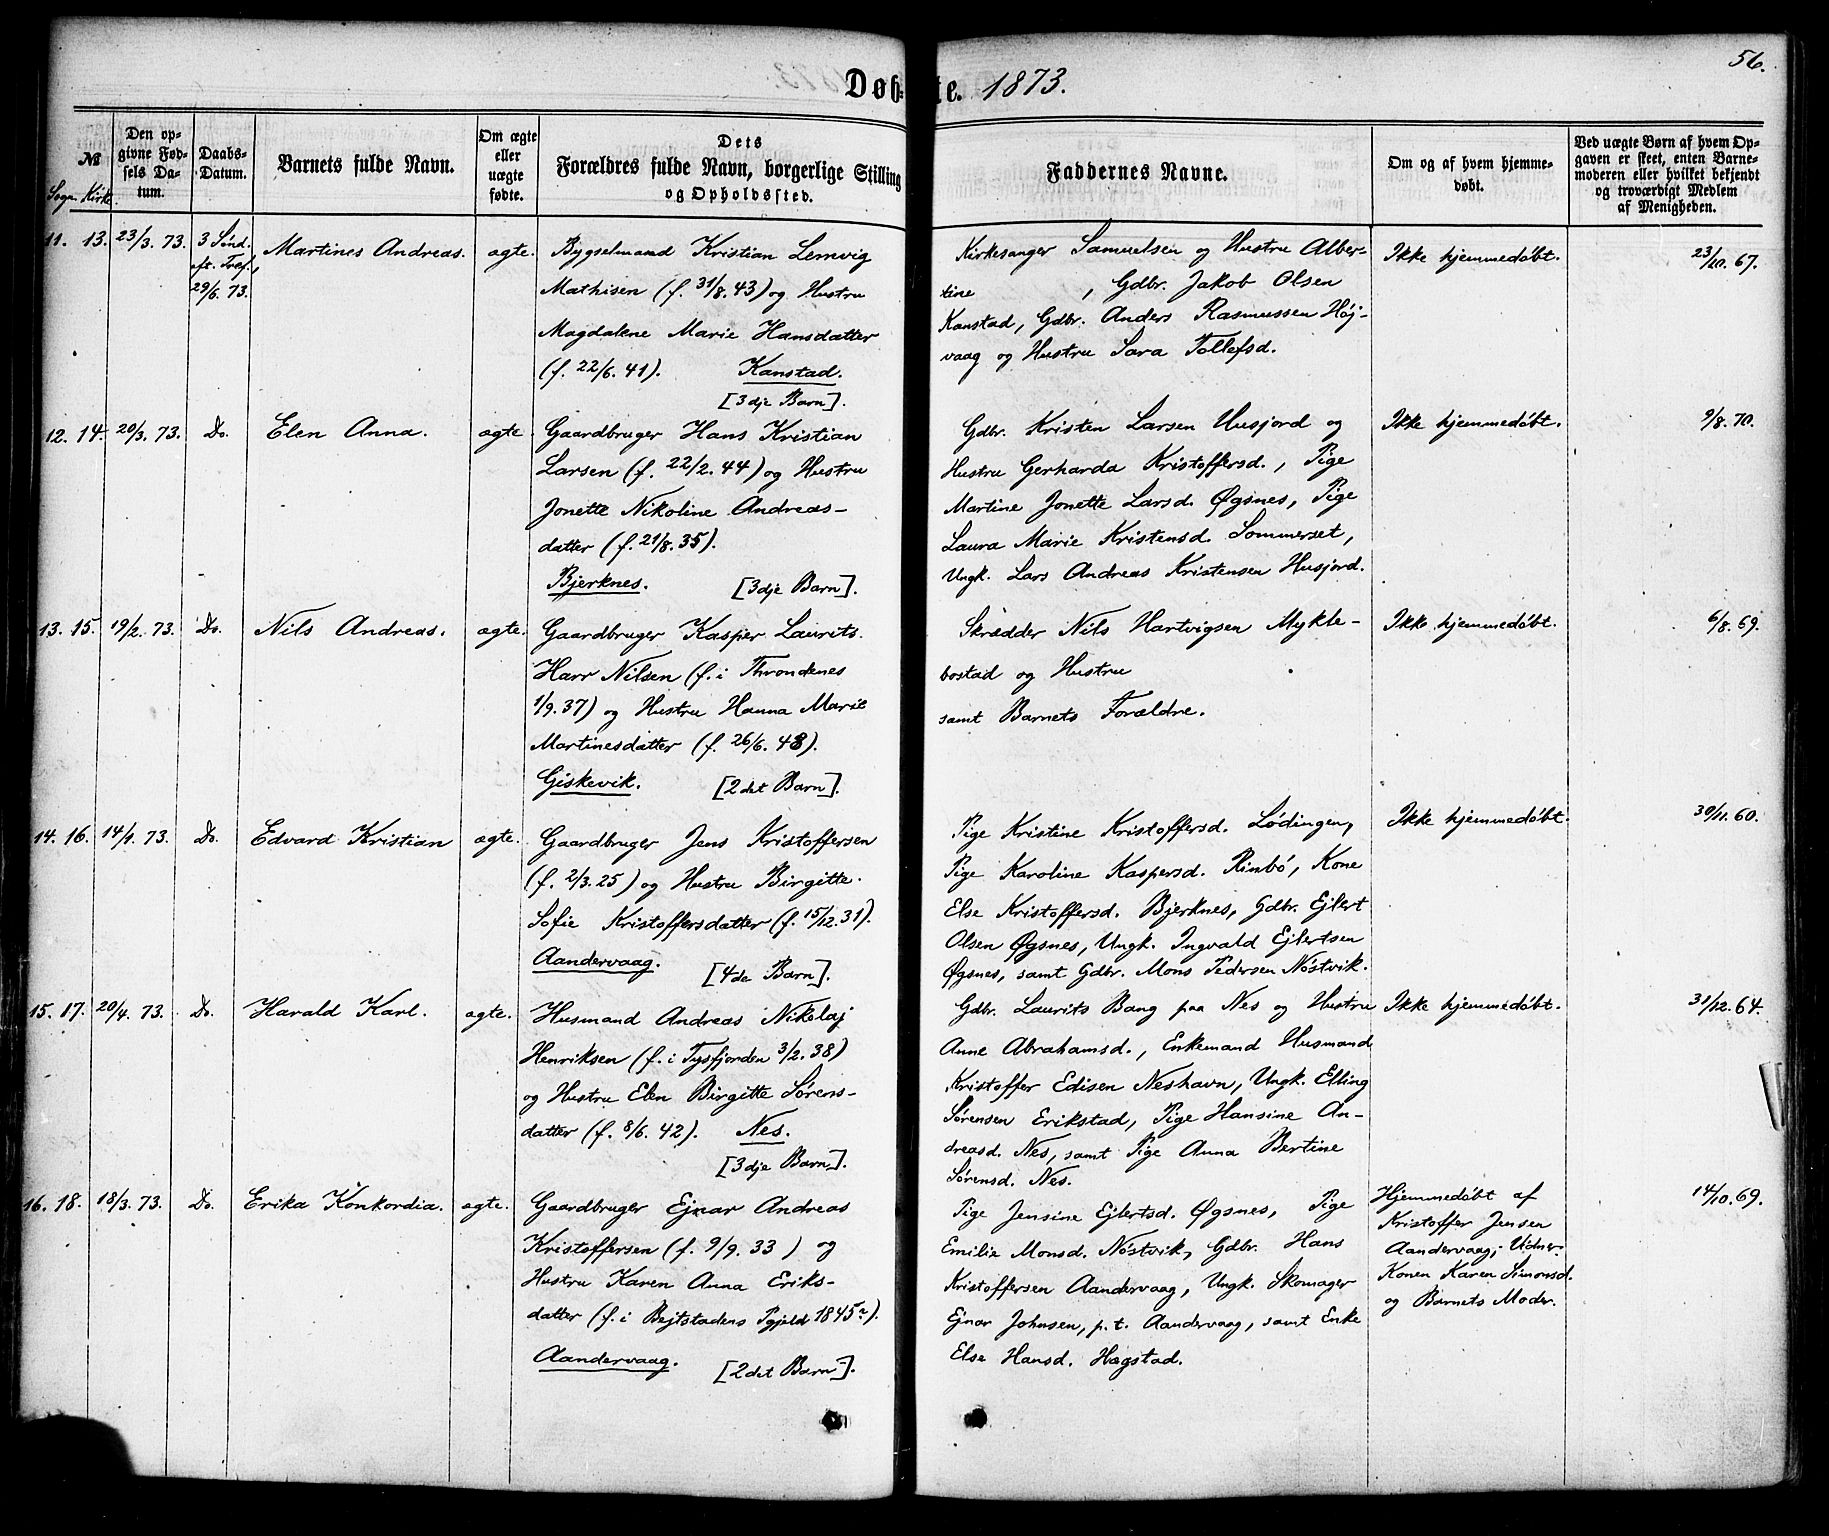 56.
Døbte. 1873.
№
Sogn. Kirke.
Den op-
givne Fød-
sels Da-
tum.
Daabs-
Datum.
Barnets fulde Navn.
Om ægte
eller
uægte
fødte.
Dets
Forældres fulde Navn, borgerlige Stilling
og Opholdssted.
Faddernes Navne.
Om og af hvem hjemme-
døbt.
Ved uægte Børn af hvem Op-
gaven er skeet, enten Barne-
moderen eller hvilket bekjendt
og troværdigt Medlem
af Menigheden.
11. 13. 23/3. 73. 3 Sønd.
eft. Tref.,
29/6. 73.
Martines Andreas. ægte.
Bygselmand Kristian Lemvig
Mathisen (f. 31/8. 43) og Hustru
Magdalene Marie Hansdatter
(f. 22/6. 41). Kanstad.
[3dje Barn].
Kirkesanger Samuelsen og Hustru Alber-
tine , Gdbr. Jakob Olsen
Kanstad, Gdbr. Anders Rasmussen Høj-
vaag og Hustru Sara Tollefsd.
Ikke hjemmedøbt.
23/10. 67.
12. 14. 20/3. 73. Do. Elen Anna. ægte
Gaardbruger Hans Kristian
Larsen (f. 22/2. 44) og Hustru
Jonette Nikoline Andreas-
datter (f. 21/8. 35).
Bjerknes. [3dje Barn].
Gdbr. Kristen Larsen Husjord og
Hustru Gerharda Kristoffersd., Pige
Martine Jonette Larsd. Øgsnes, Pige
Laura Marie Kristensd. Sommerset,
Ungk. Lars Andreas Kristensen Husjord.
Ikke hjemmedøbt.
9/8. 70.
13. 15. 19/2. 73. Do. Nils Andreas. ægte.
Gaardbruger Kasper Laurits
Harr Nilsen (f. i Throndenes
1/9. 37) og Hustru Hanna Marie
Martinesdatter (f. 26/6. 48).
Giskevik. [2det Barn].
Skrædder Nils Hartvigsen Mykle-
bostad og Hustru
samt Barnets Forældre.
Ikke hjemmedøbt.
6/8. 69.
14. 16. 14/1. 73. Do. Edvard Kristian ægte.
Gaardbruger Jens Kristoffersen
(f. 2/3. 25) og Hustru Birgitte
Sofie Kristoffersdatter (f. 15/12. 31).
Aandervaag. [4de Barn].
Pige Kristine Kristoffersd. Lødingen,
Pige Karoline Kaspersd. Rinbø, Kone
Else Kristoffersd. Bjerknes, Gdbr. Ejlert
Olsen Øgsnes, Ungk. Ingvald Ejlertsen
Øgsnes, samt Gdbr. Mons Pedersen Nøstvik.
Ikke hjemmedøbt.
30/11. 60.
15. 17. 20/4. 73. Do. Harald Karl. ægte.
Husmand Andreas Nikolaj
Henriksen (f. i Tysfjorden 3/2. 38)
og Hustru Elen Birgitte Sørens-
datter (f. 8/6. 42). Nes.
[3dje Barn].
Gdbr. Laurits Bang paa Nes og Hustru
Anne Abrahamsd., Enkemand Husmand
Kristoffer Edisen Neshavn, Ungk. Elling
Sørensen Erikstad, Pige Hansine An-
dreasd. Nes, samt Pige Anna Bertine
Sørensd. Nes.
Ikke hjemmedøbt.
31/12. 64.
16. 18. 18/3. 73. Do. Erika Konkordia. ægte.
Gaardbruger Ejnar Andreas
Kristoffersen (f. 9/9. 33) og
Hustru Karen Anna Eriks-
datter (f. i Bejtstadens Pgjeld 1845?).
Aandervaag. [2det Barn].
Pige Jensine Ejlertsd. Øgsnes, Pige
Emilie Monsd. Nøstvik, Gdbr. Hans
Kristoffersen Aandervaag, Ungk. Skomager
Ejnar Johnsen, p. t. Aandervaag, samt Enke
Else Hansd. Hægstad.
Hjemmedøbt af
Kristoffer Jensen
Aandervaag; Vidner:
Konen Karen Simonsd.
og Barnets Moder.
14/10. 69.